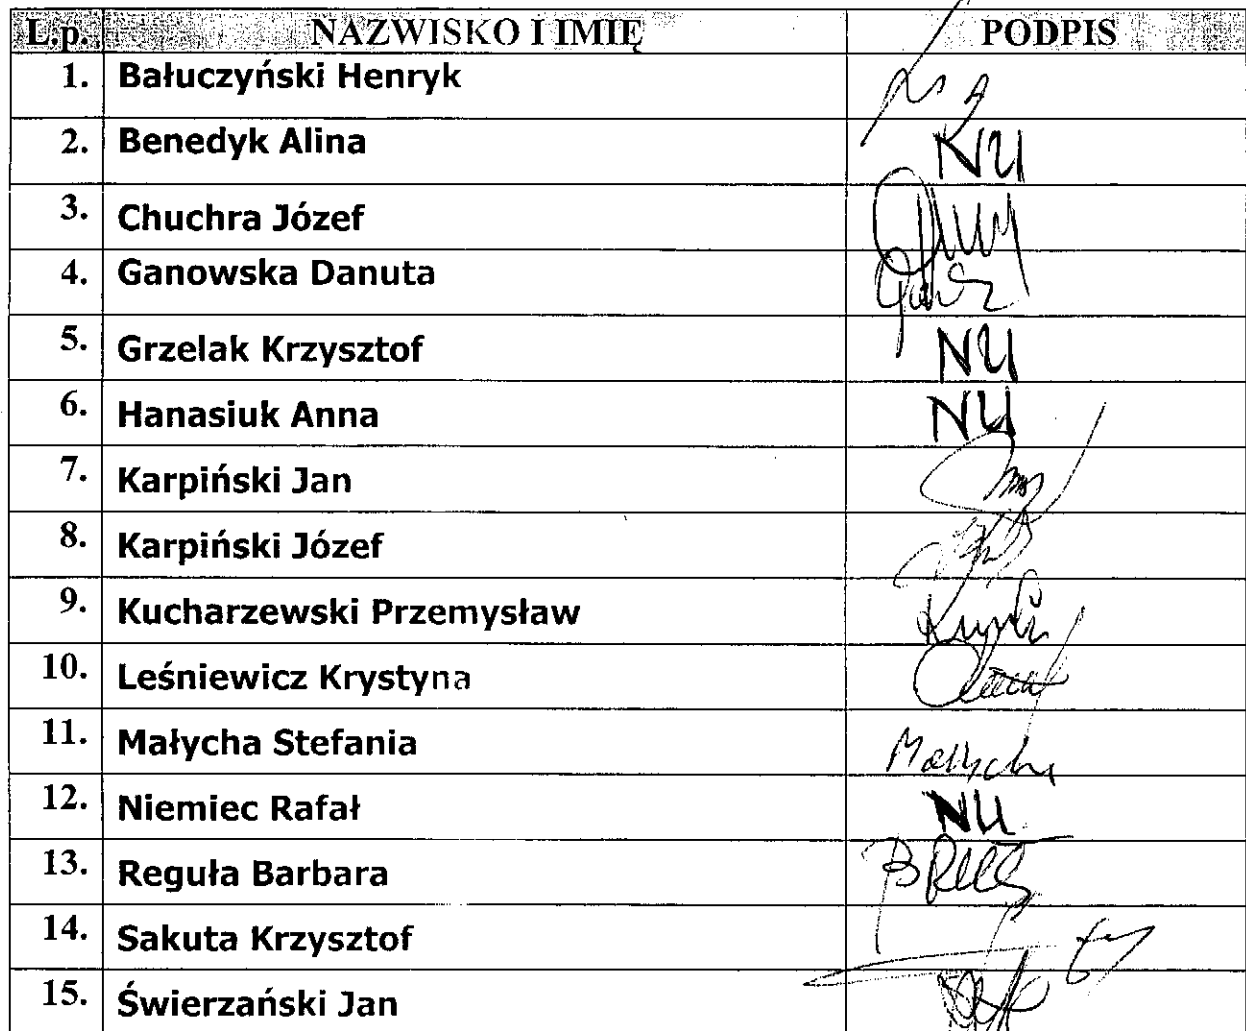 L.p. NAZWISKO I IMIĘ PODPIS
1. Bałuczyński Henryk
2. Benedyk Alina NU
3. Chuchra Józef
4. Ganowska Danuta
5. Grzelak Krzysztof NU
6. Hanasiuk Anna NU
7. Karpiński Jan
8. Karpiński Józef
9. Kucharzewski Przemysław
10. Leśniewicz Krystyna
11. Małycha Stefania Małycha
12. Niemiec Rafał NU
13. Reguła Barbara
14. Sakuta Krzysztof
15. Świerzański Jan